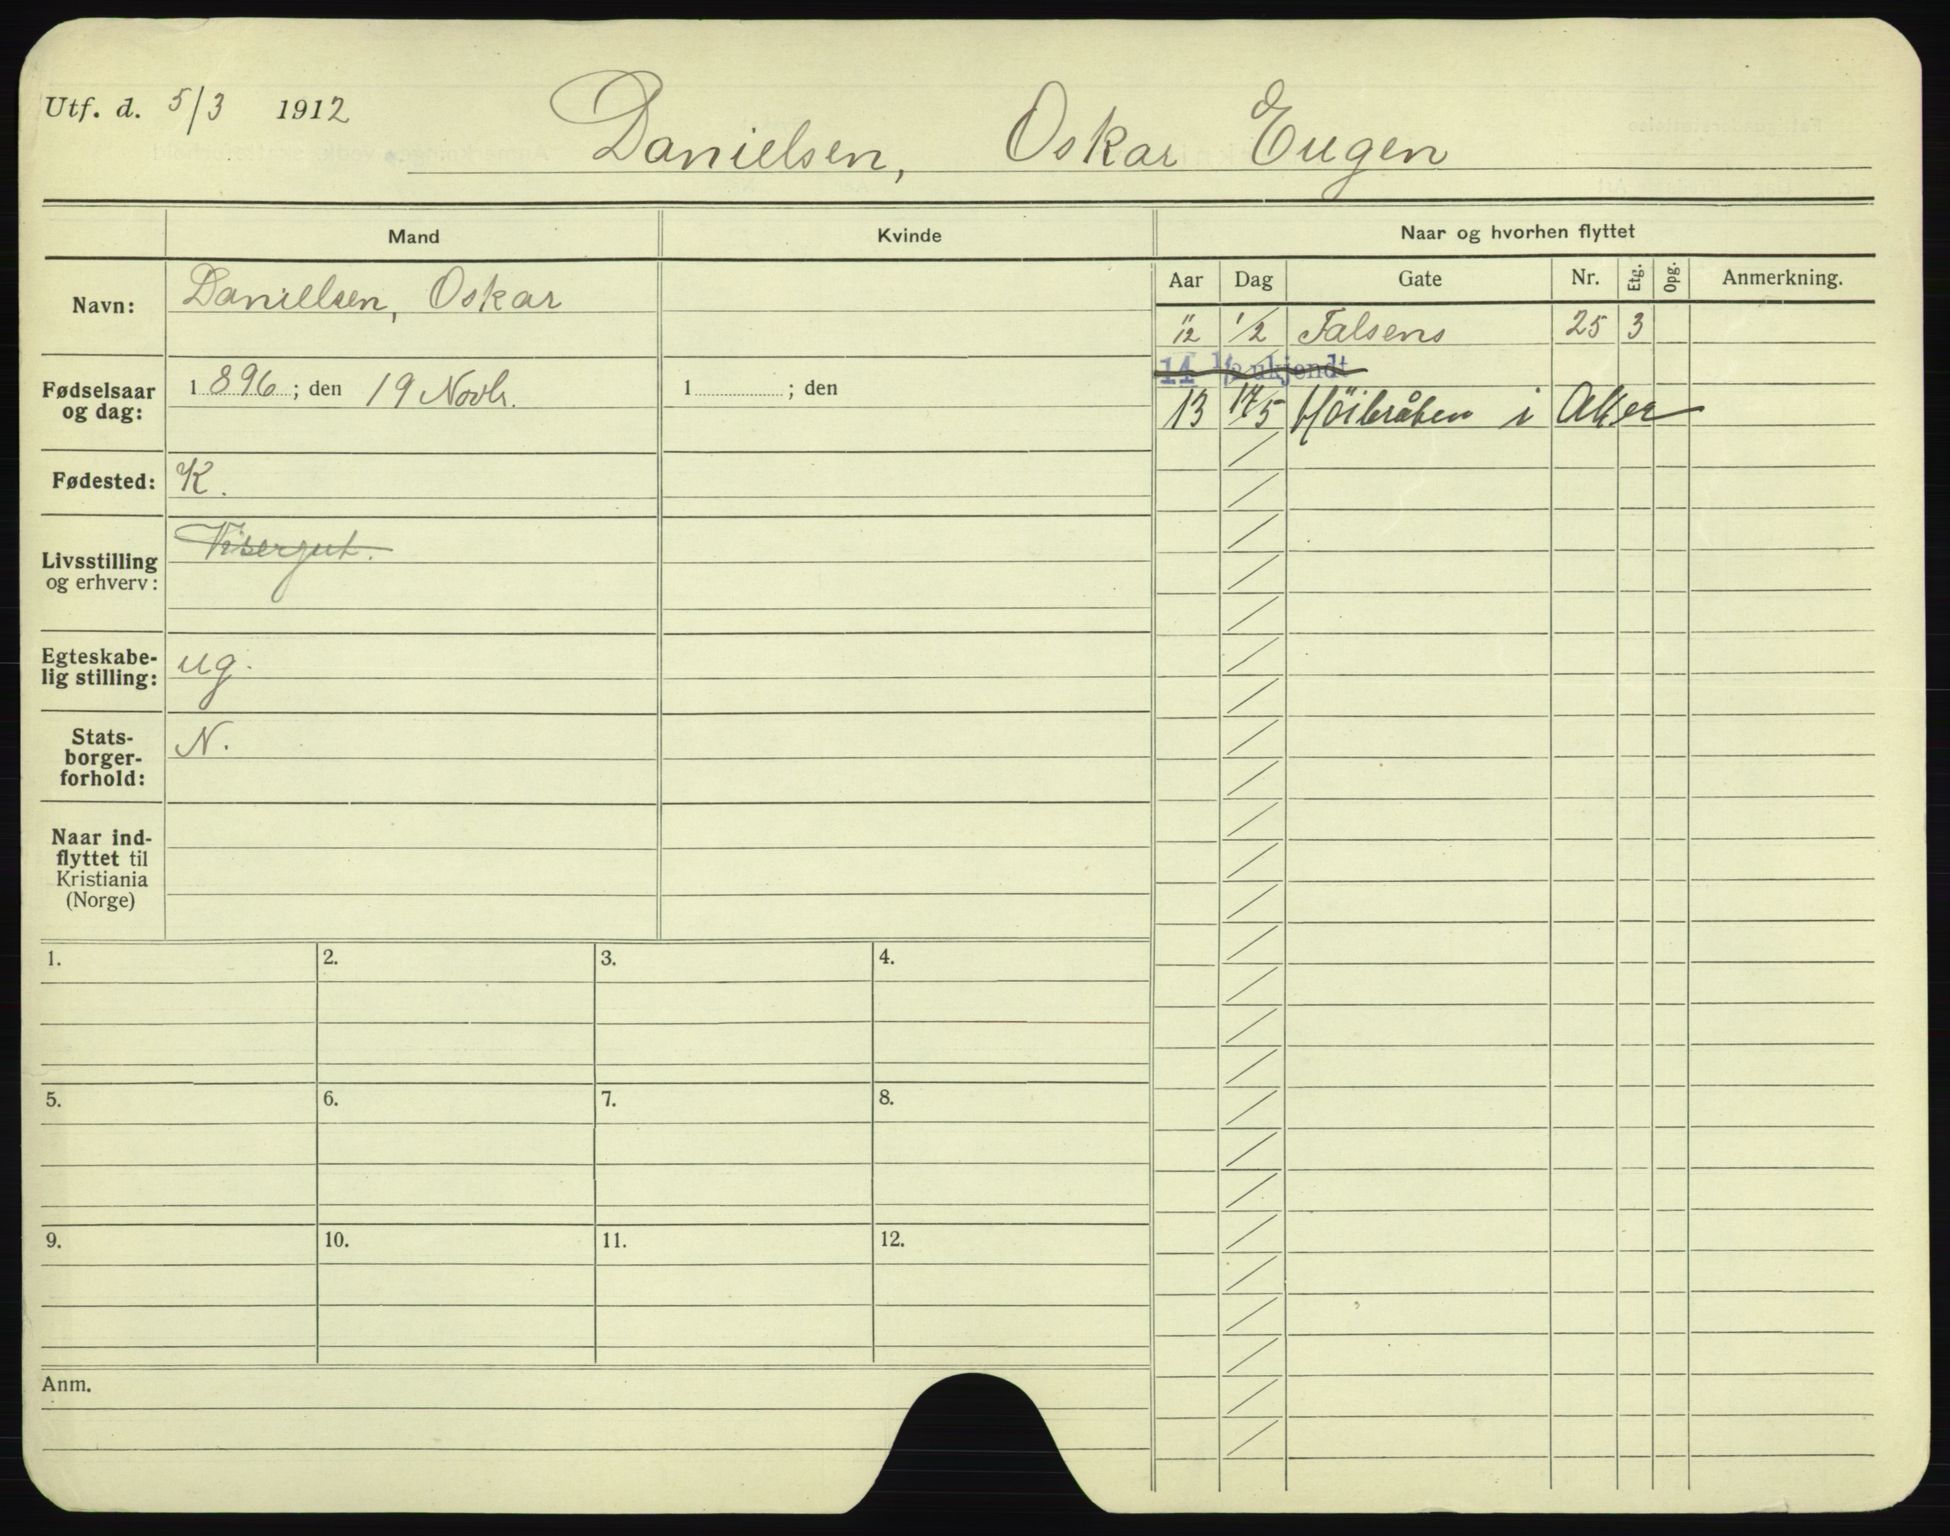 Utf. d. 5/3 1912
Danielsen, Oskar Eugen
Mand
Kvinde
Naar og hvorhen flyttet
Aar Dag Gate Nr. Etg. Opg. Anmerkning.
Navn: Danielsen, Oskar
12 1/2 Falsens 25 3
14 1/2 ukjendt
13 17/5 Höibråten i Aker
Fødselsaar og dag: 1896; den 19 Novbr.
1 ; den
Fødested: K.
Livsstilling og erhverv: Visergut.
Egteskabe-
lig stilling: ug.
Stats-
borger-
forhold: N.
Naar ind-
flyttet til
Kristiania
(Norge)
1. 2. 3. 4.
5. 6. 7. 8.
9. 10. 11. 12.
Anm.